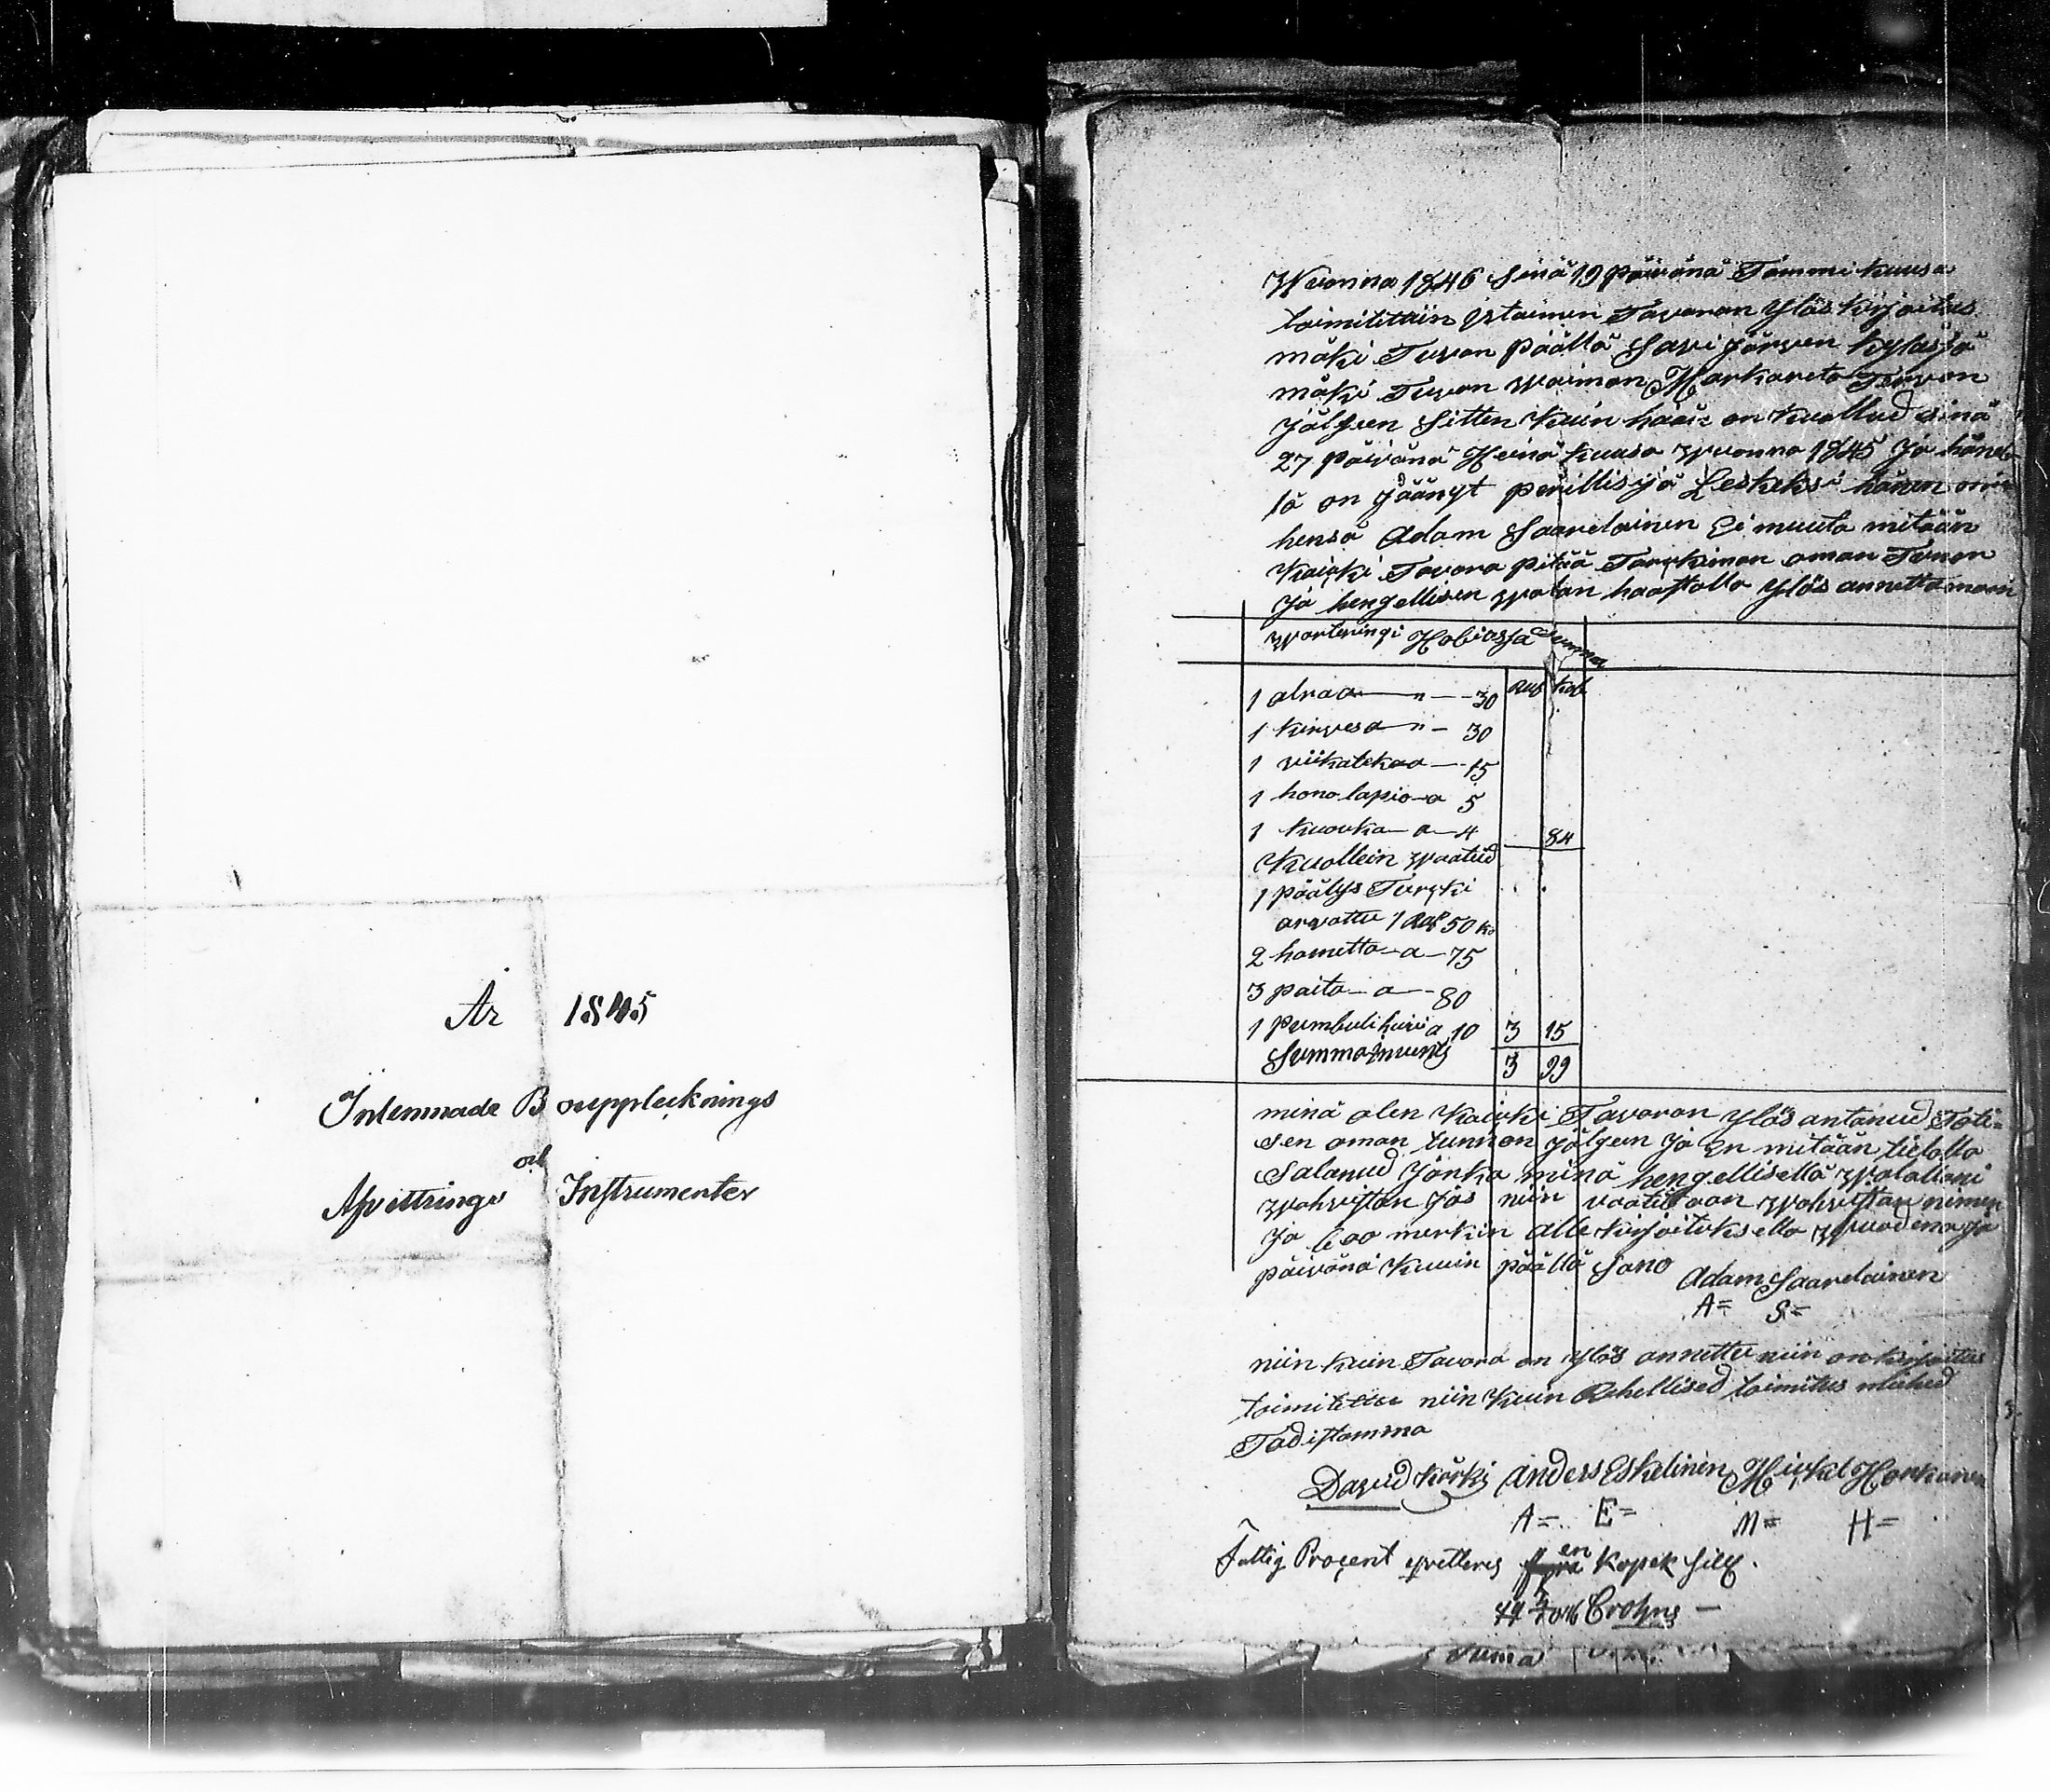 År 1845
Inlemnade Boupptecknings
och
Afvittrings Instrumenter
Wuonna 1846 Sinä 19 päivänä Tammi kuusa
toimitettiin Jrtaimen Tavaran Ylös kirjoitus
mäki Tuvan päällä Savi järven kyläsjä
mäki Tuvan waimon Markareta Tervon
jälgeen Sitten kuin hään on kuollud sinä
27 päivänä Heinä kuusa wuonna 1845 Ja hänel-
lä on jäänyt perillisijä Leskeksi hänen mie
hensä Adam Saarelainen Ei muuta mitään
Kaicki Tavara pitää Tarckiman oman Tunon
Ja hengellisen walan haastolla Ylös annettaman
warteringi Hobiassa Summa
Rub kob
1 atraa " 30
1 kirvesa " 30
1 viikatekaa 15
1 hono lapio a 5
1 kuocka a 4 84
Kuollein waatiid
1 päälys Turcki
arvattu 1 Rub 50 ko
2 hametta a 75
3 paita a 80
1 pumbuli huivi a 10 3 15
Summa 3 99
minä olen kaicki Tavaran Ylös antanud Toti-
sen oman tunnon jälgeen ja En mitään tietolla
Salanud Jonka minä hengellisellä walallani
wahvistan Jos niin vaatitaan wahvistan nimen
Ja boo merkin alle kirjoituksella wuodena ja
päivänä kuuin päällä Sano
Adam Saarelainen
A= S=
niin kuin Tavara on Ylös annettu niin on kirjoitus
toimitettu niin kuin Rehellised toimitus miehed
Todistamma
David Kärki Anders Eskelinen Mickel Honkanen
A= E= M= H=
Fattig Procent qvitteras en Kopek Silf.
Crohns
Suma